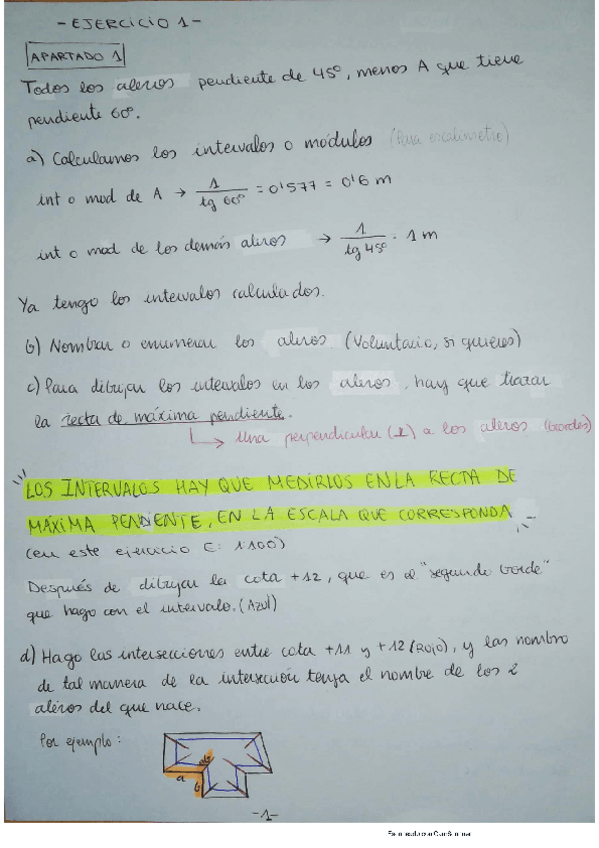 - EJERCICIO 1 -
APARTADO 1
Todos los aleros pendiente de 45º, menos A que tiene
pendiente 60º.
a) Calculamos los intervalos o módulos (para escalímetro)
int o mod de A → 1 / tg 60º = 0'577 = 0'6 m
int o mod de los demás aleros → 1 / tg 45º = 1 m
Ya tengo los intervalos calculados.
b) Nombrar o enumerar los aleros (Voluntario, si quieres)
c) Para dibujar los intervalos en los aleros, hay que trazar
la recta de máxima pendiente.
↳ Una perpendicular (⊥) a los aleros (bordes)
LOS INTERVALOS HAY QUE MEDIRLOS EN LA RECTA DE
MÁXIMA PENDIENTE, EN LA ESCALA QUE CORRESPONDA
(en este ejercicio E: 1:100)
Después de dibujar la cota +12, que es el "segundo borde"
que hago con el intervalo. (Azul)
d) Hago las intersecciones entre cota +11 y +12 (ROJO), y las nombro
de tal manera de la intersección tenga el nombre de los 2
aleros del que nace.
Por ejemplo:
a
b
-1-